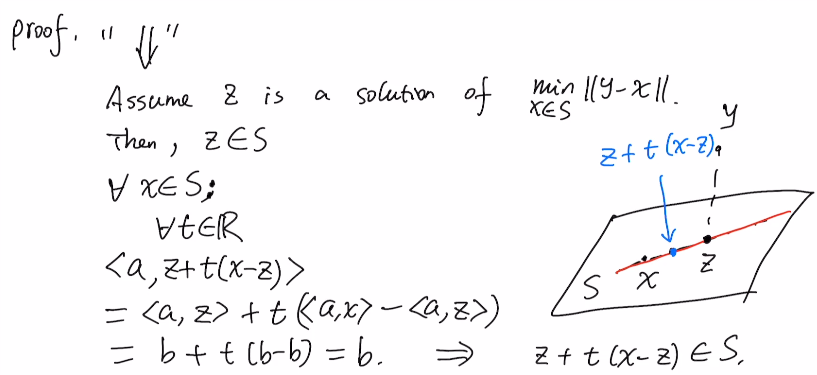 proof. "⇓"
Assume z is a solution of min ||y-x||.
x∈S
Then, z∈S
∀ x∈S;
∀t∈ℝ
<a, z+t(x-z)>
= <a, z> + t(<a,x> - <a,z>)
= b + t(b-b) = b. ⇒ z + t(x-z) ∈ S.
y
z + t(x-z)
S
x
z